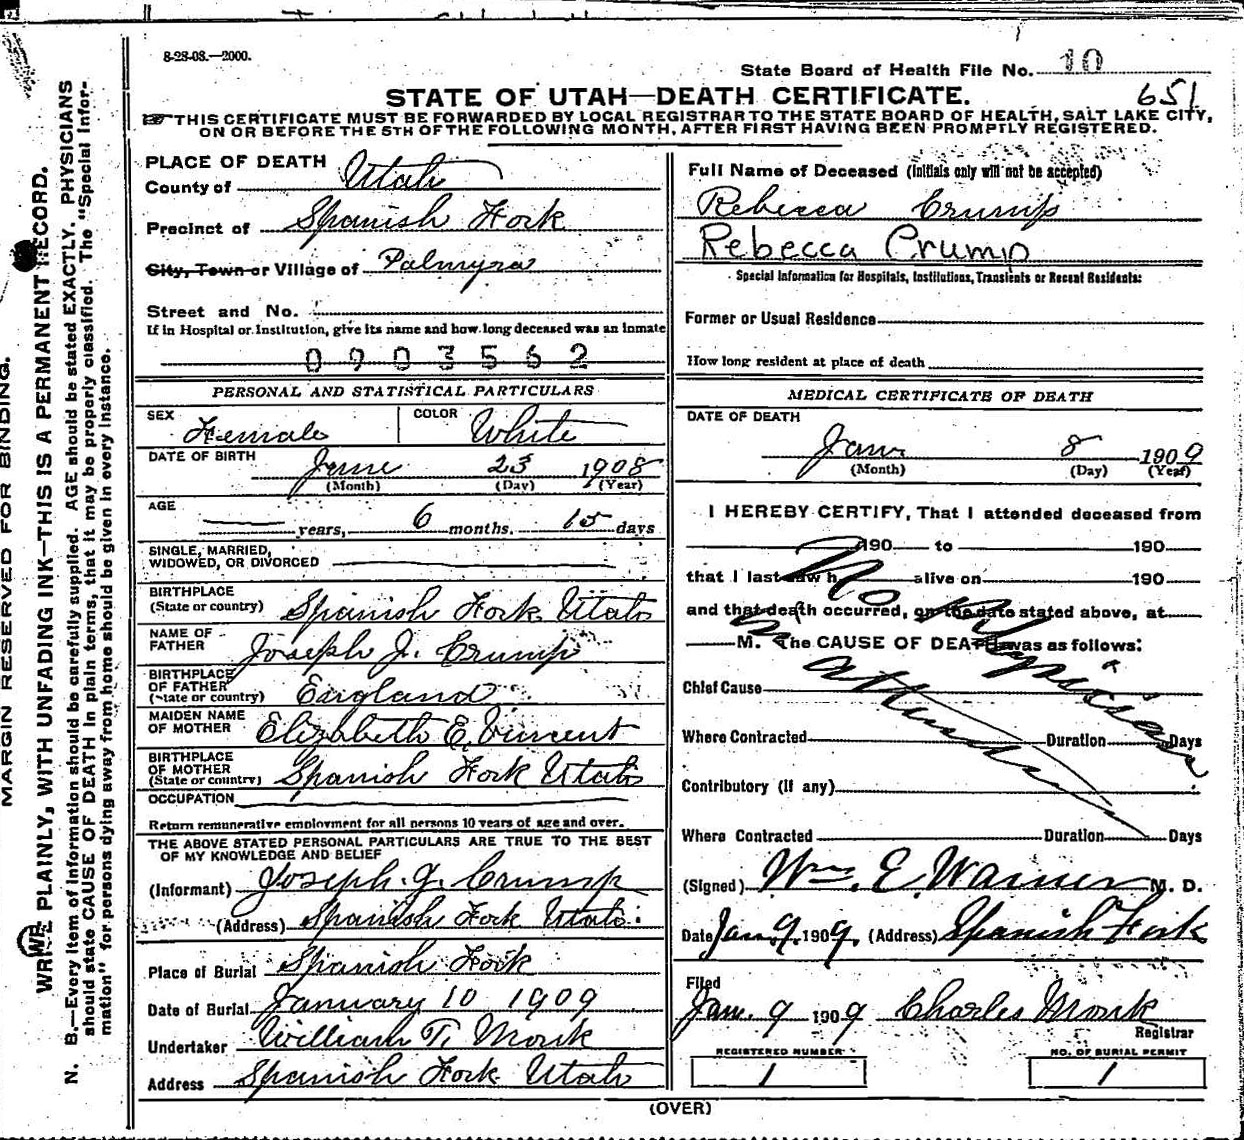 8-28-08.—2000.
State Board of Health File No. 10
651
STATE OF UTAH—DEATH CERTIFICATE.
THIS CERTIFICATE MUST BE FORWARDED BY LOCAL REGISTRAR TO THE STATE BOARD OF HEALTH, SALT LAKE CITY,
ON OR BEFORE THE 5TH OF THE FOLLOWING MONTH, AFTER FIRST HAVING BEEN PROMPTLY REGISTERED.
PLACE OF DEATH
County of Utah
Precinct of Spanish Fork
City, Town or Village of Palmyra
Street and No.
If in Hospital or Institution, give its name and how long deceased was an inmate
0903562
PERSONAL AND STATISTICAL PARTICULARS
SEX Female COLOR White
DATE OF BIRTH June 23 1908
(Month) (Day) (Year)
AGE years, 6 months. 15 days
SINGLE, MARRIED,
WIDOWED, OR DIVORCED
BIRTHPLACE
(State or country) Spanish Fork Utah
NAME OF
FATHER Joseph J. Crump
BIRTHPLACE
OF FATHER
(State or country) England
MAIDEN NAME
OF MOTHER Elizabeth E. Vincent
BIRTHPLACE
OF MOTHER
(State or country) Spanish Fork Utah
OCCUPATION
Return remunerative employment for all persons 10 years of age and over.
THE ABOVE STATED PERSONAL PARTICULARS ARE TRUE TO THE BEST
OF MY KNOWLEDGE AND BELIEF
(Informant) Joseph. J. Crump
(Address) Spanish Fork Utah.
Place of Burial Spanish Fork
Date of Burial January 10 1909
Undertaker William T. Monk
Address Spanish Fork Utah
Full Name of Deceased (Initials only will not be accepted)
Rebecca Crump
Rebecca Crump
Special Information for Hospitals, Institutions, Transients or Recent Residents:
Former or Usual Residence
How long resident at place of death
MEDICAL CERTIFICATE OF DEATH
DATE OF DEATH
Jan. 8 1909
(Month) (Day) (Year)
I HEREBY CERTIFY, That I attended deceased from
190 to 190
that I last saw h alive on 190
and that death occurred, on the date stated above, at
M. The CAUSE OF DEATH was as follows:
No Physician
in attendance
Chief Cause
Where Contracted Duration Days
Contributory (if any)
Where Contracted Duration Days
(Signed) Wm. E. Warner M. D.
Date Jan. 9. 1909. (Address) Spanish Fork
Filed
Jan. 9 1909 Charles Monk
Registrar
REGISTERED NUMBER
1
NO. OF BURIAL PERMIT
1
(OVER)
MARGIN RESERVED FOR BINDING.
WRITE PLAINLY, WITH UNFADING INK—THIS IS A PERMANENT RECORD.
N. B.—Every item of information should be carefully supplied. AGE should be stated EXACTLY. PHYSICIANS
should state CAUSE OF DEATH in plain terms, that it may be properly classified. The "Special Infor-
mation" for persons dying away from home should be given in every instance.